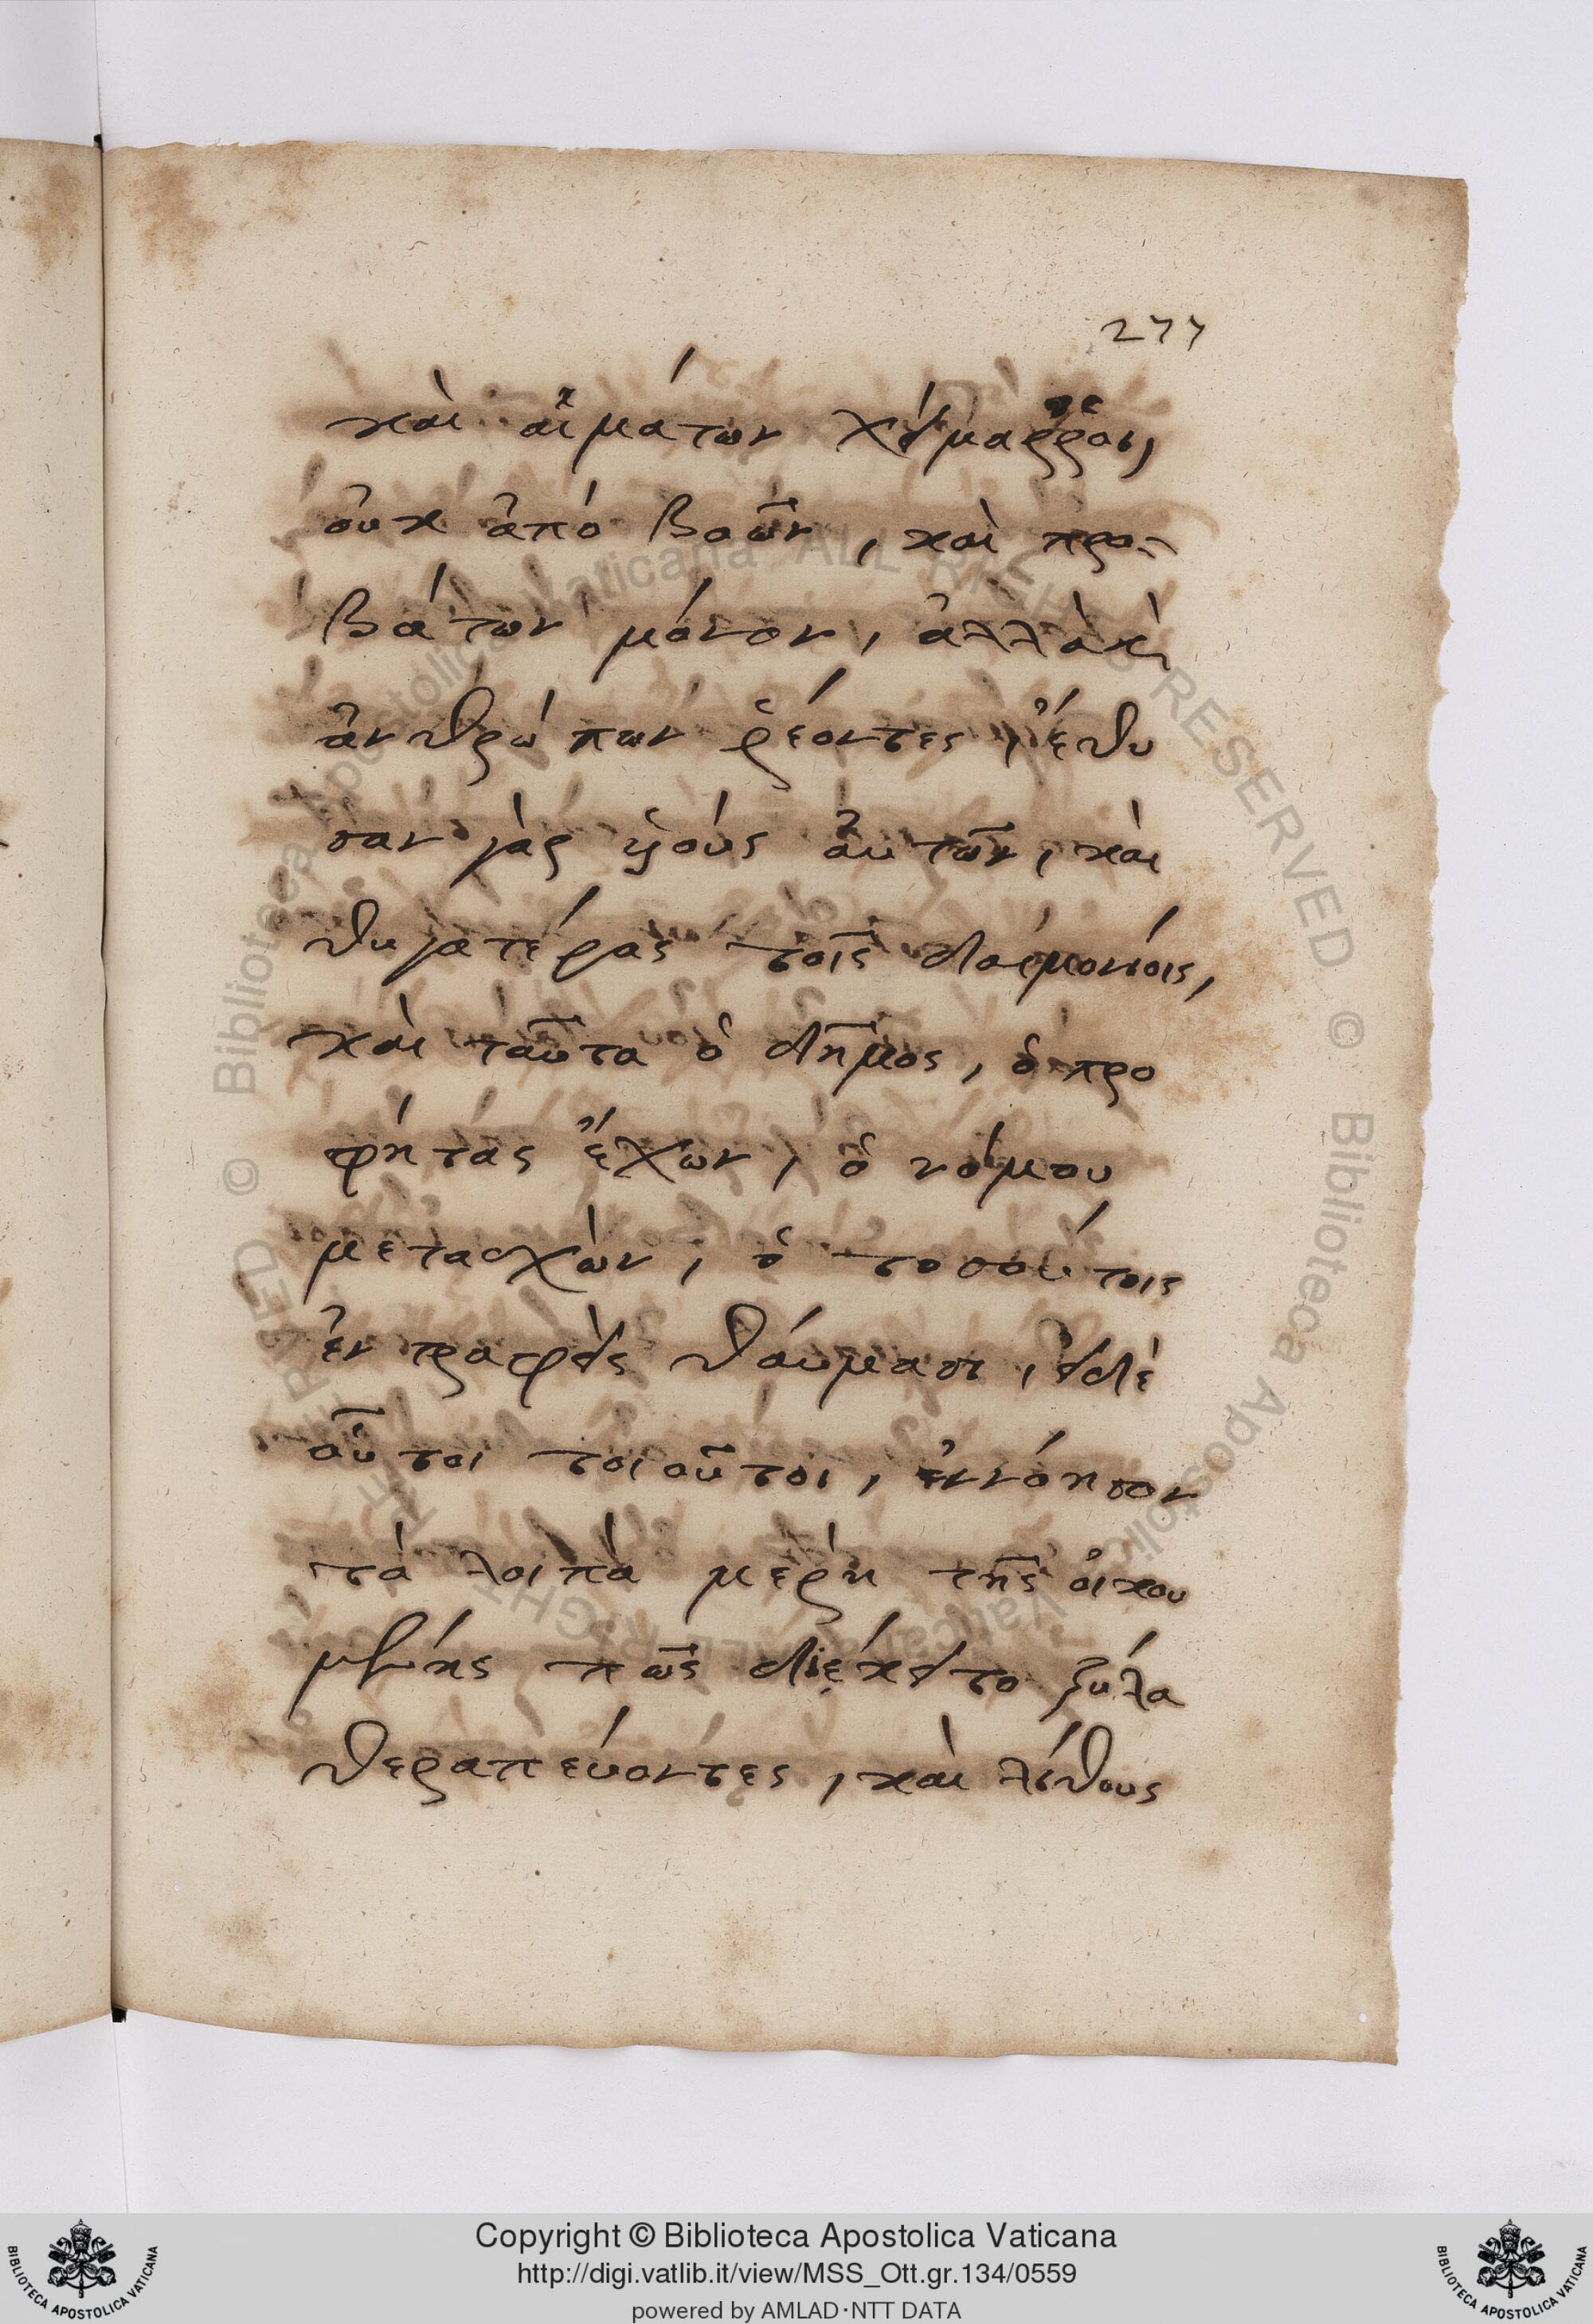 277
καὶ αἱμάτων χείμαρροι,
οὐκ ἀπό βοῶν, καὶ προ-
βάτων μόνον, ἀλλὰ κ̀
ἀνθρώπων ῥέοντες, ἔθυ
σαν γὰρ υἱούς αὐτῶν, καὶ
θυγατέρας τοῖς δαιμονίοις,
καὶ ταῦτα ὁ δῆμος, ὁ προ
φήτας ἔχων, ὁ νόμου
μετασχὼν, ὁ τοσούτοις
ἐντραφεὶς θαύμασι, εἰ δὲ
οὗτοι τοιοῦτοι, ἐννόησον
τὰ λοιπὰ μέρη τῆς οἰκου
μένης πῶς διέκειτο ξύλα
θεραπεύοντες, καὶ λίθους
© Biblioteca Apostolica Vaticana ALL RIGHTS RESERVED
© Biblioteca Apostolica Vaticana ALL RIGHTS RESERVED
Copyright © Biblioteca Apostolica Vaticana
http://digi.vatlib.it/view/MSS_Ott.gr.134/0559
powered by AMLAD·NTT DATA
BIBLIOTECA APOSTOLICA VATICANA
BIBLIOTECA APOSTOLICA VATICANA